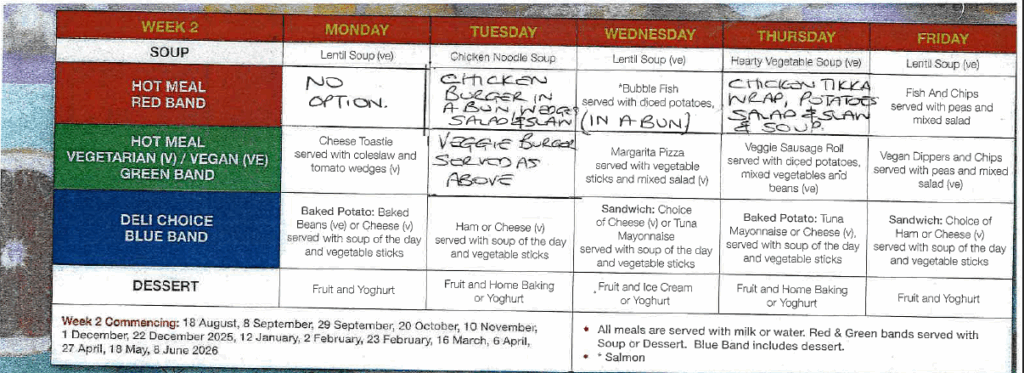 WEEK 2 MONDAY TUESDAY WEDNESDAY THURSDAY FRIDAY
SOUP
Lentil Soup (ve)
Chicken Noodle Soup
Lentil Soup (ve)
Hearty Vegetable Soup (ve)
Lentil Soup (ve)
HOT MEAL
RED BAND
NO
OPTION.
CHICKEN
BURGER IN
A BUN, WEDGES
SALAD & SLAW
*Bubble Fish
served with diced potatoes,
(IN A BUN)
CHICKEN TIKKA
WRAP, POTATOES
SALAD & SLAW
& SOUP.
Fish And Chips
served with peas and
mixed salad
HOT MEAL
VEGETARIAN (V) / VEGAN (VE)
GREEN BAND
Cheese Toastie
served with coleslaw and
tomato wedges (v)
VEGGIE BURGER
SERVED AS
ABOVE
Margarita Pizza
served with vegetable
sticks and mixed salad (v)
Veggie Sausage Roll
served with diced potatoes,
mixed vegetables and
beans (ve)
Vegan Dippers and Chips
served with peas and mixed
salad (ve)
DELI CHOICE
BLUE BAND
Baked Potato: Baked
Beans (ve) or Cheese (v)
served with soup of the day
and vegetable sticks
Ham or Cheese (v)
served with soup of the day
and vegetable sticks
Sandwich: Choice
of Cheese (v) or Tuna
Mayonnaise
served with soup of the day
and vegetable sticks
Baked Potato: Tuna
Mayonnaise or Cheese (v),
served with soup of the day
and vegetable sticks
Sandwich: Choice of
Ham or Cheese (v)
served with soup of the day
and vegetable sticks
DESSERT
Fruit and Yoghurt
Fruit and Home Baking
or Yoghurt
Fruit and Ice Cream
or Yoghurt
Fruit and Home Baking
or Yoghurt
Fruit and Yoghurt
Week 2 Commencing: 18 August, 8 September, 29 September, 20 October, 10 November,
1 December, 22 December 2025, 12 January, 2 February, 23 February, 16 March, 6 April,
27 April, 18 May, 8 June 2026
• All meals are served with milk or water. Red & Green bands served with
Soup or Dessert. Blue Band includes dessert.
• * Salmon